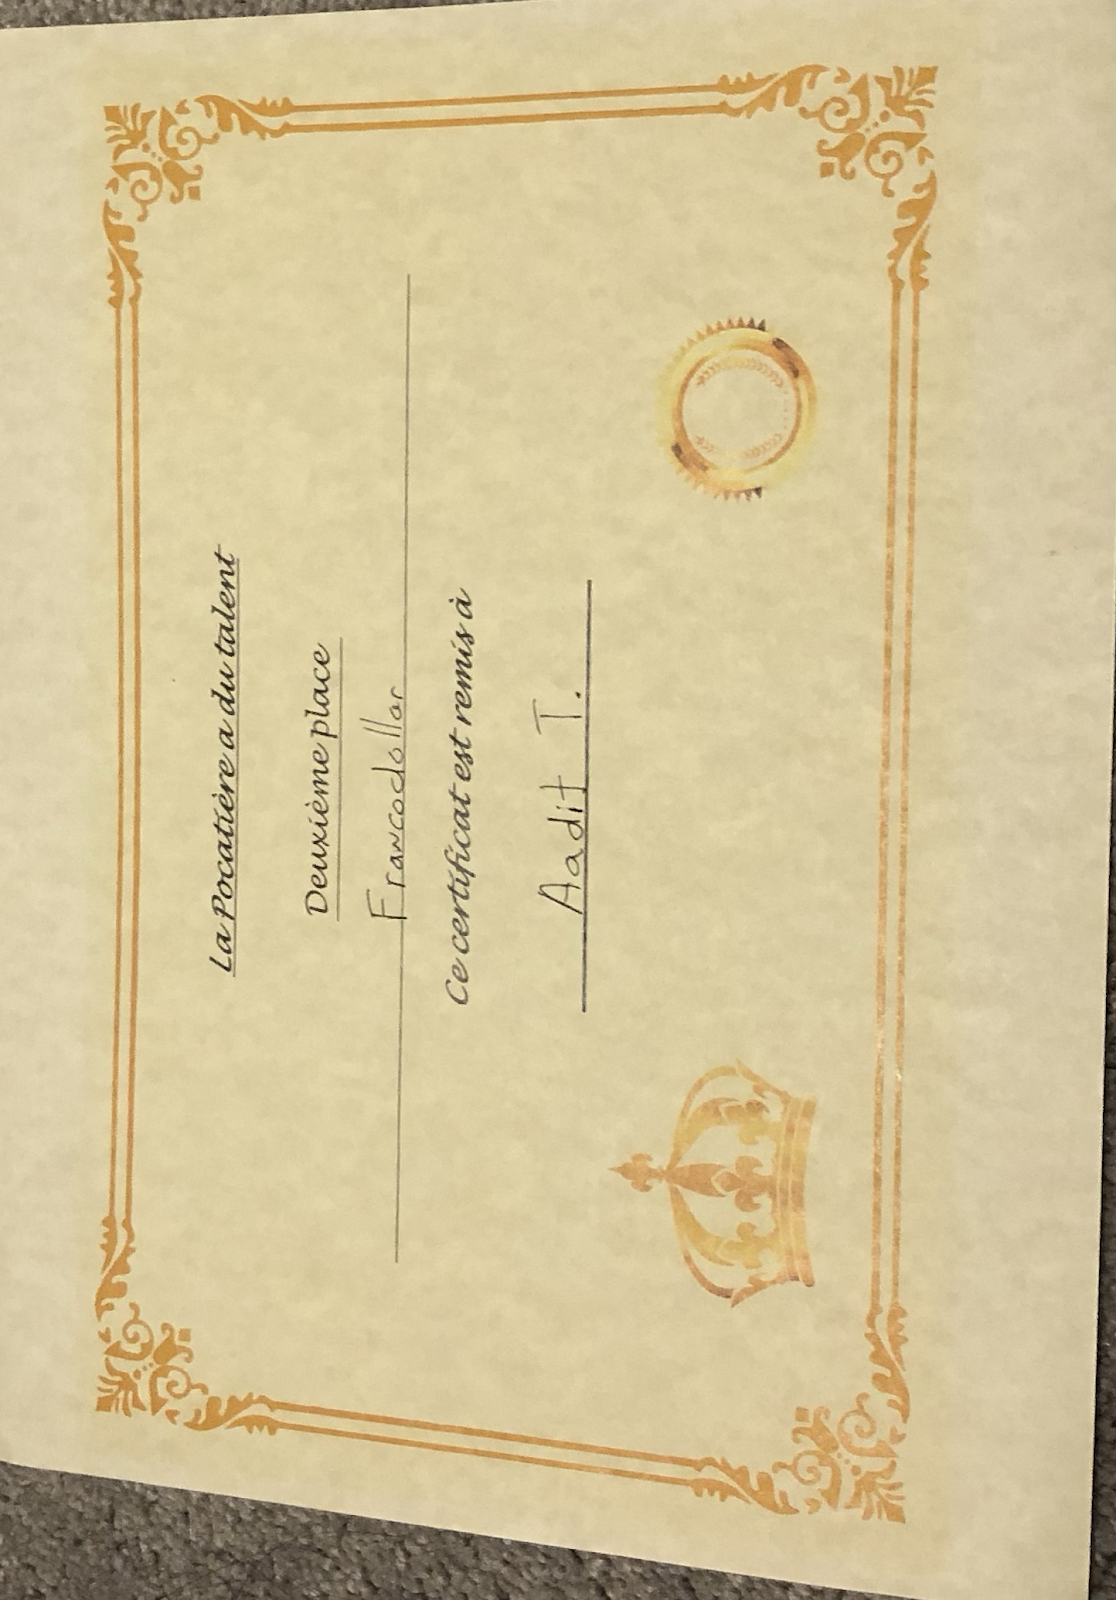 La Pocatière a du talent
Deuxième place
Francodollar
Ce certificat est remis à
Aadit T.